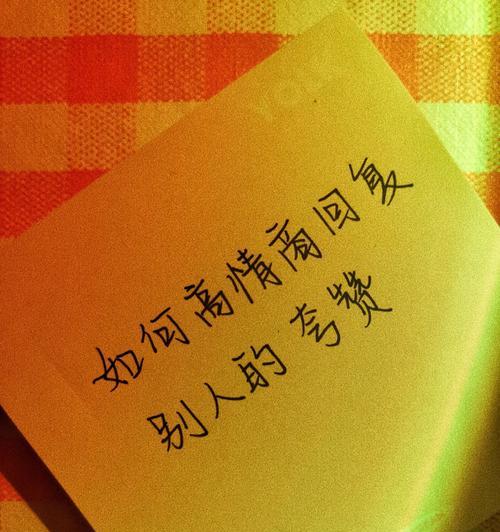 如何高情商回复
别人的夸赞